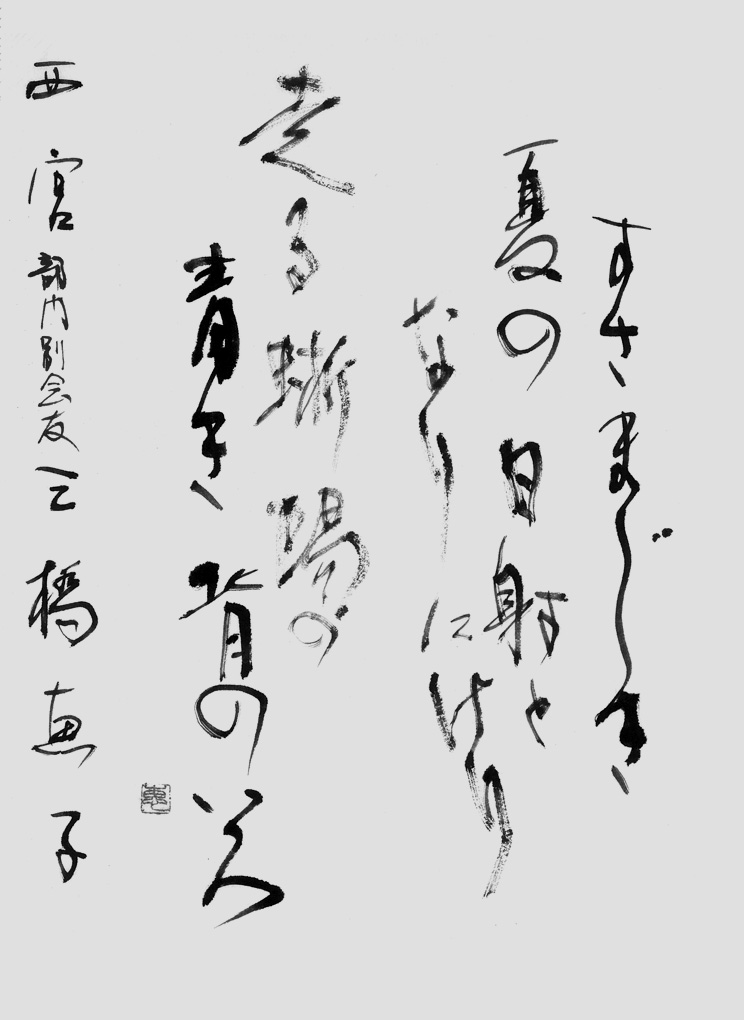 すさまじき
夏の日射と
なりにけり
走る蜥蜴の
青き背の
西宮 部内別会友 三橋恵子